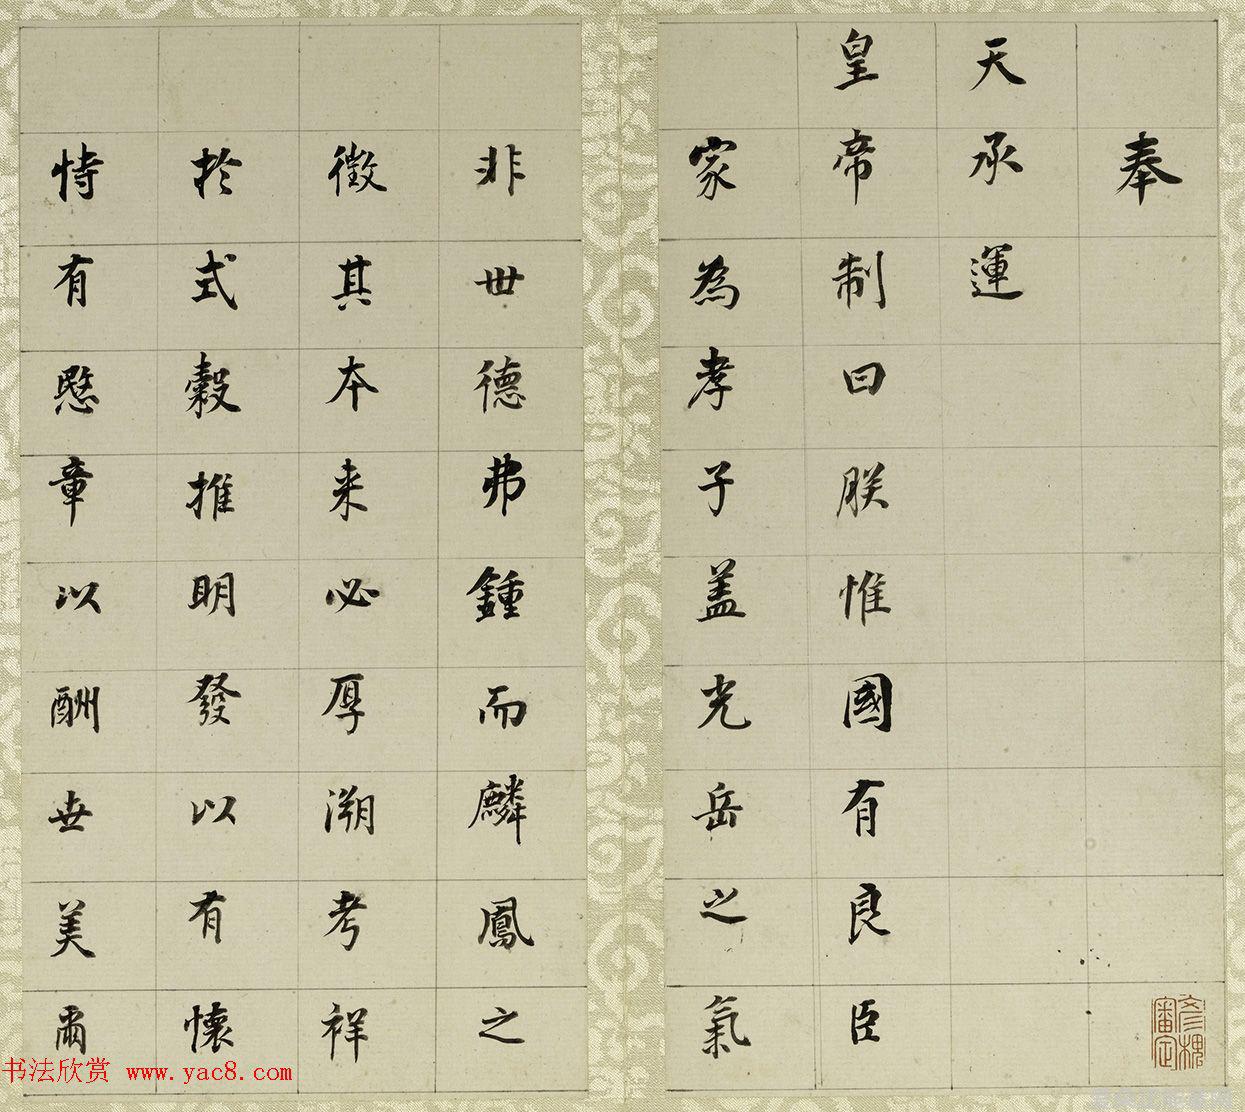 奉
天承運
皇帝制曰朕惟國有良臣
家為孝子盖光岳之氣
非世德弗鍾而麟鳳之
徵其本来必厚溯考祥
於式穀推明發以有懷
恃有愍章以酬世美爾
彦槐審定
书法欣赏 www.yac8.com